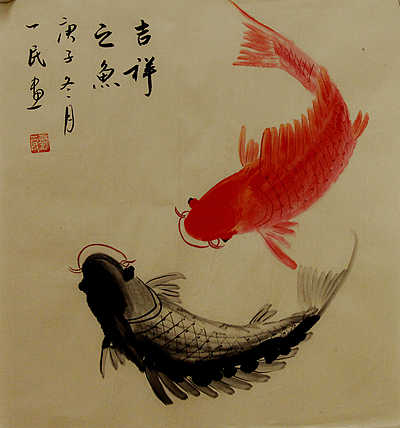 吉祥
之魚
庚子冬月
一民画